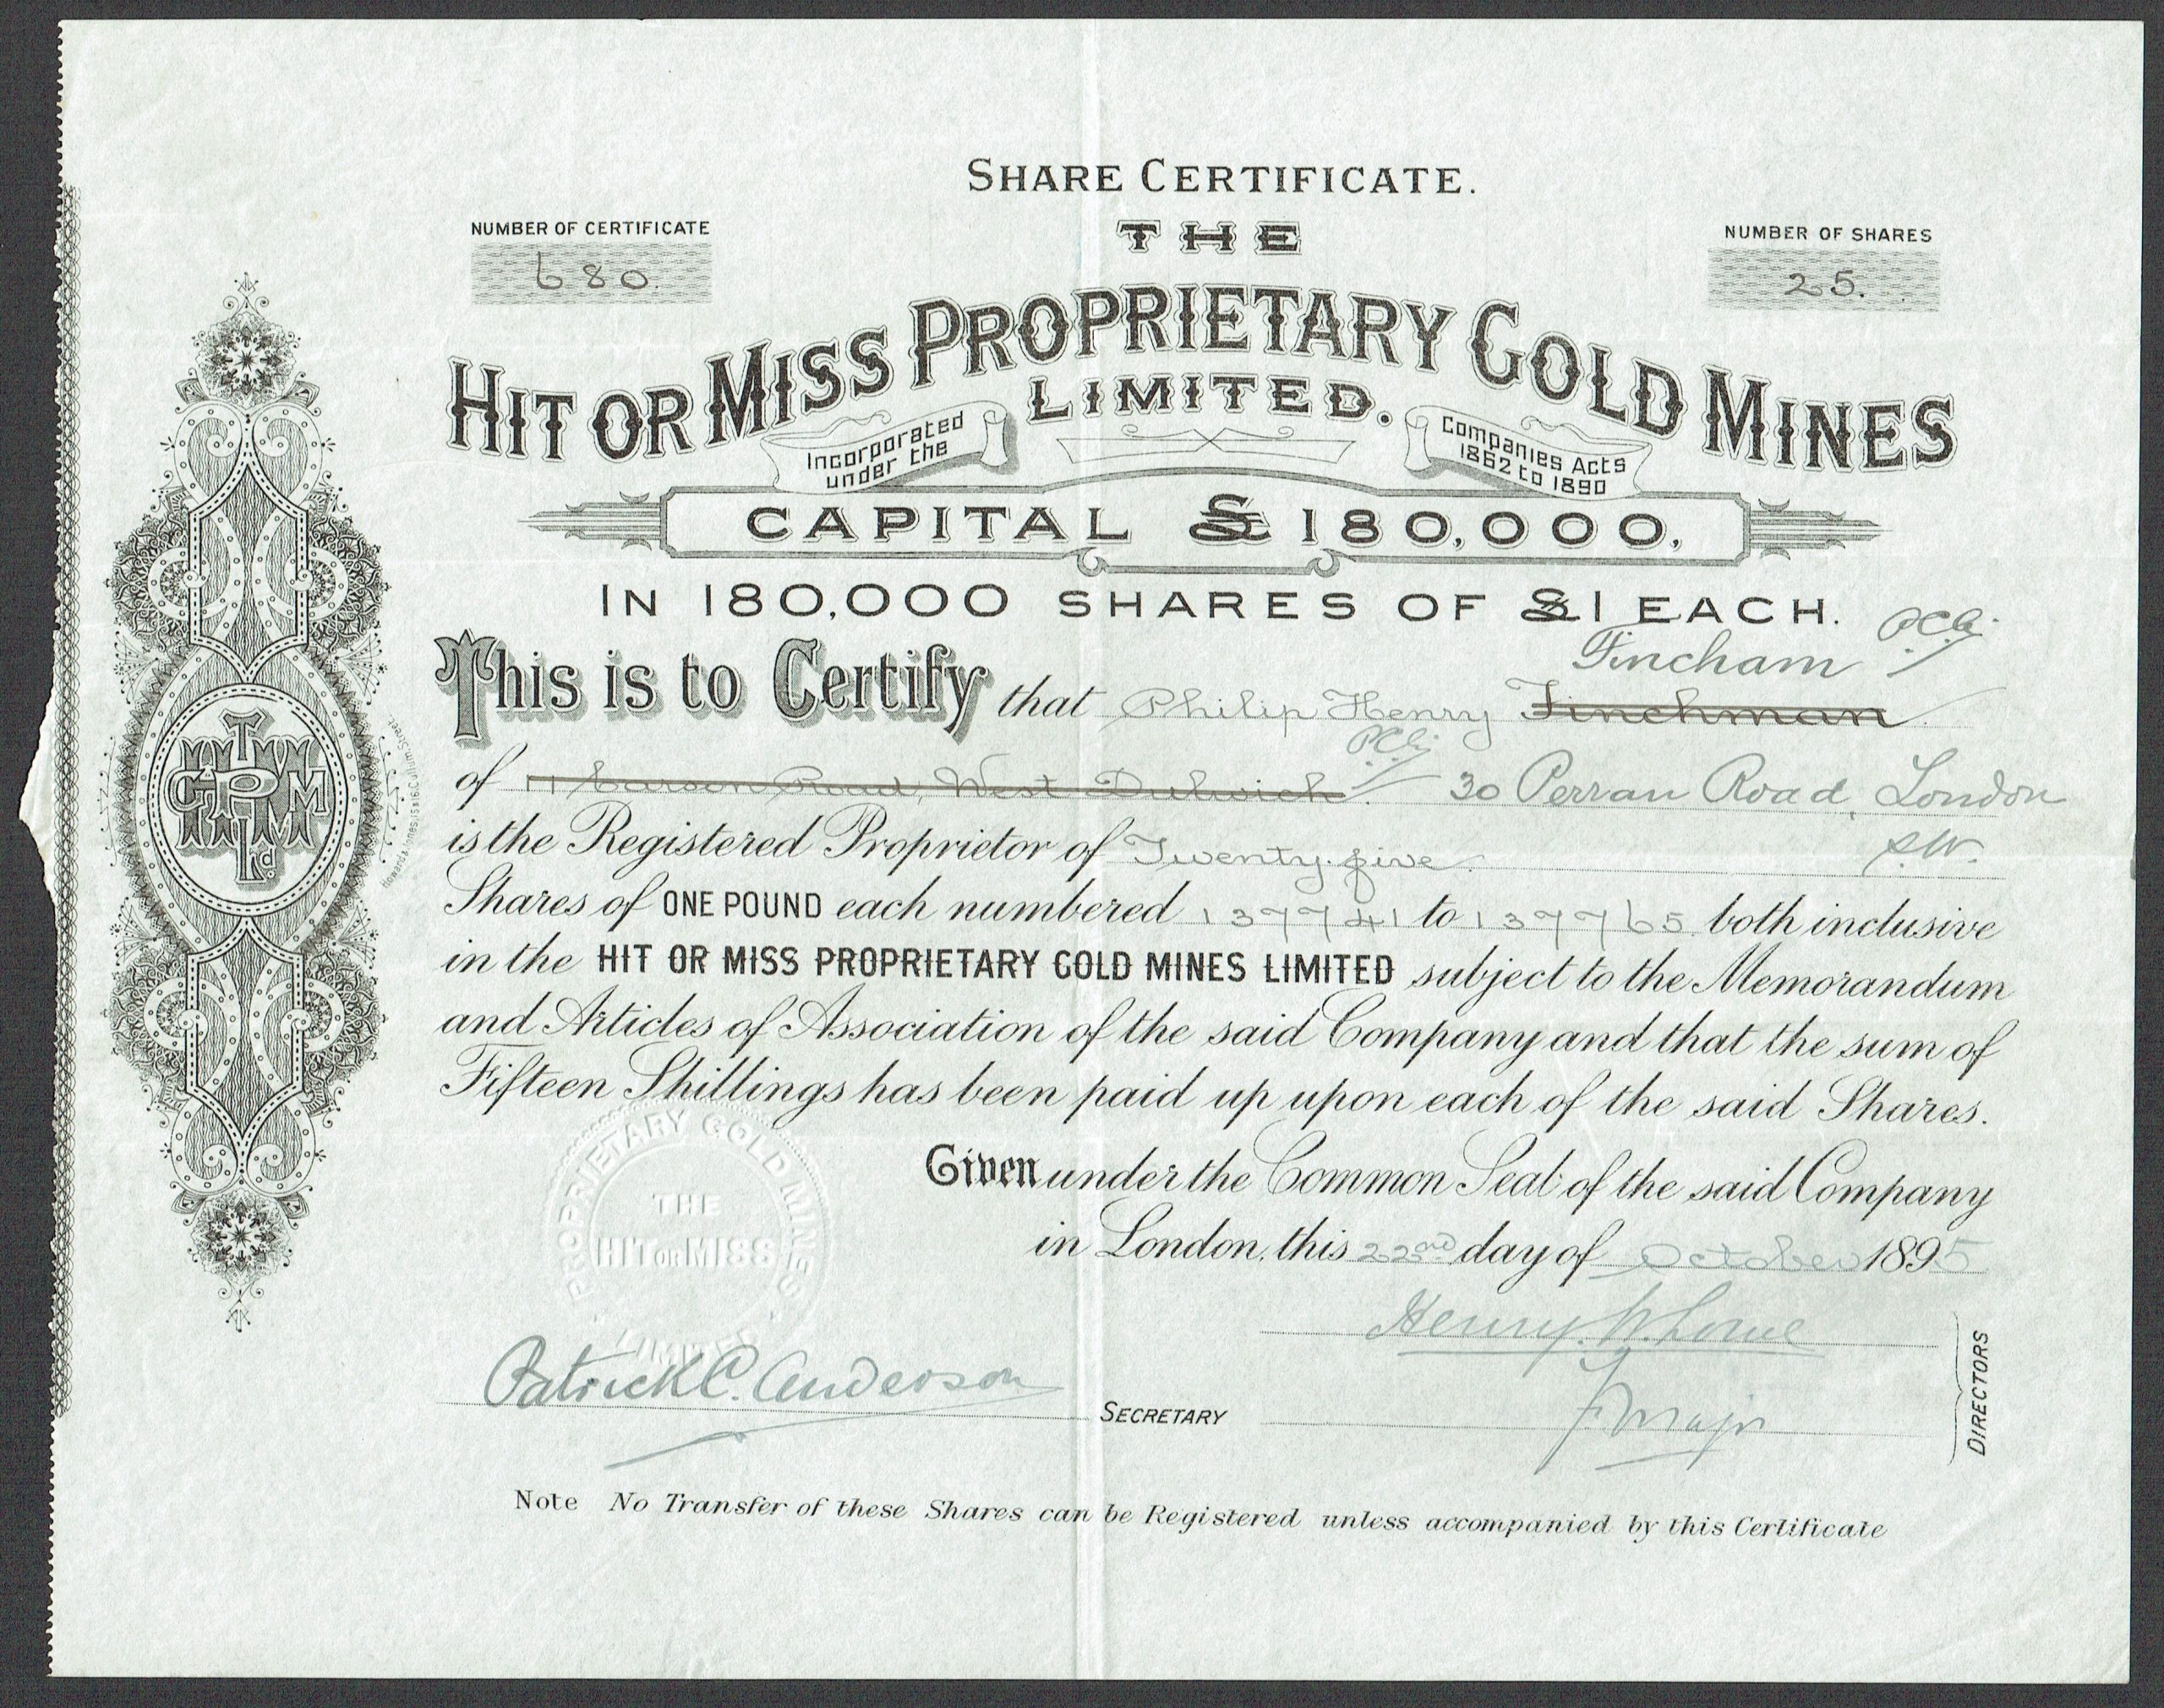 SHARE CERTIFICATE.
NUMBER OF CERTIFICATE
680.
NUMBER OF SHARES
25.
THE
HIT OR MISS PROPRIETARY GOLD MINES
LIMITED.
Incorporated under the
Companies Acts 1862 to 1890
CAPITAL £180,000,
IN 180,000 SHARES OF £1 EACH.
Fincham
This is to Certify that Philip Henry Finchman
of 11 Carson Road, West Dulwich. 30 Perran Road, London
S.W.
is the Registered Proprietor of Twenty-five
Shares of ONE POUND each numbered 137741 to 137765 both inclusive
in the HIT OR MISS PROPRIETARY GOLD MINES LIMITED subject to the Memorandum
and Articles of Association of the said Company and that the sum of
Fifteen Shillings has been paid up upon each of the said Shares.
Given under the Common Seal of the said Company
in London, this 22nd day of October 1895
PROPRIETARY GOLD MINES
THE
HIT OR MISS
LIMITED
Henry. W. Lowe
Patrick C. Anderson
SECRETARY
F Major
DIRECTORS
Note No Transfer of these Shares can be Registered unless accompanied by this Certificate